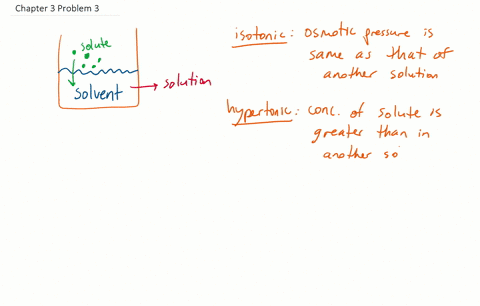 Chapter 3 Problem 3
solute
solvent
solution
isotonic: osmotic pressure is
same as that of
another solution
hypertonic: conc. of solute is
greater than in
another so